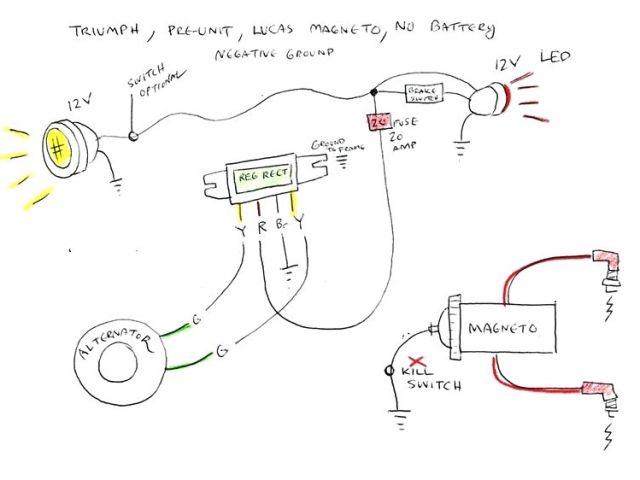 TRIUMPH, PRE-UNIT, LUCAS MAGNETO, NO BATTERY
NEGATIVE GROUND
SWITCH
OPTIONAL
12V
12V LED
BRAKE
SWITCH
20
FUSE
20
AMP
GROUND
TO FRAME
REG RECT
Y R Br Y
G
G
ALTERNATOR
MAGNETO
X
KILL
SWITCH